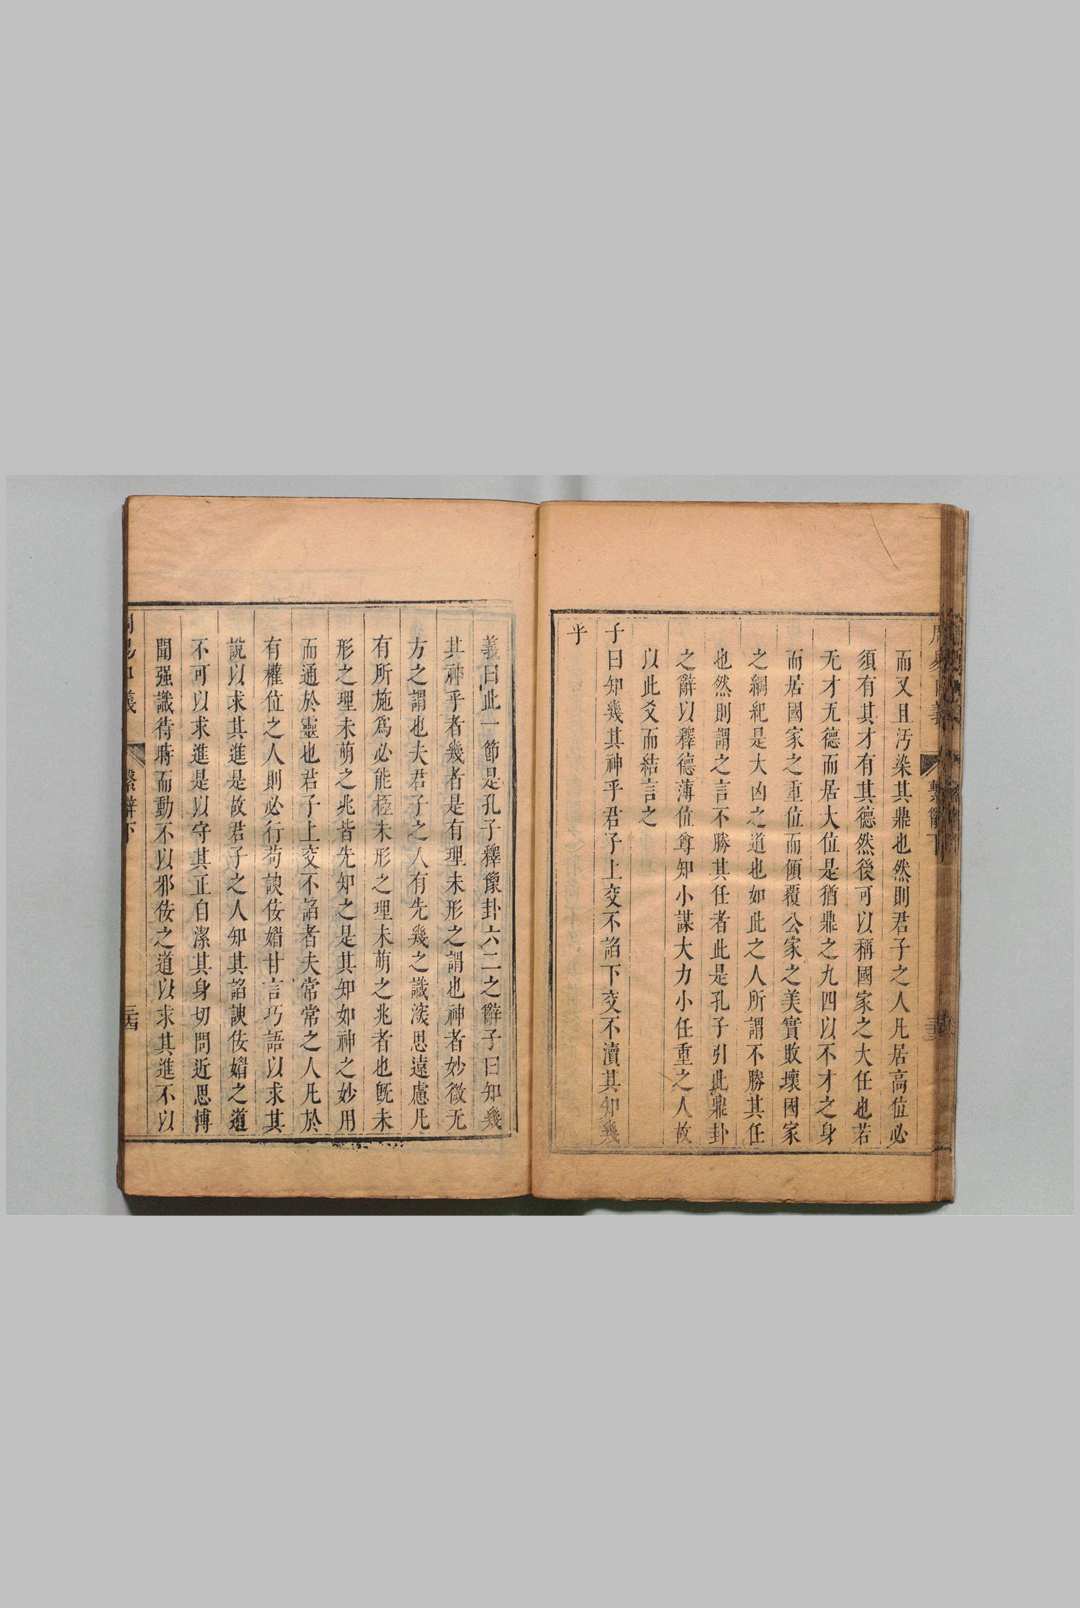 而又且汚染其鼎也然則君子之人凡居高位必
須有其才有其德然後可以稱國家之大任也若
无才无德而居大位是猶鼎之九四以不才之身
而居國家之重位而傾覆公家之美實敗壞國家
之綱紀是大凶之道也如此之人所謂不勝其任
也然則謂之言不勝其任者此是孔子引此鼎卦
之辭以釋德薄位尊知小謀大力小任重之人故
以此爻而結言之
子曰知幾其神乎君子上交不諂下交不瀆其知幾
乎
義曰此一節是孔子釋豫卦六二之辭子曰知幾
其神乎者幾者是有理未形之謂也神者妙微无
方之謂也夫君子之人有先幾之識深思遠慮凡
有所施爲必能極未形之理未萌之兆者也旣未
形之理未萌之兆皆先知之是其知如神之妙用
而通於靈也君子上交不諂者夫常常之人凡於
有權位之人則必行苟諛佞婿甘言巧語以求其
說以求其進是故君子之人知其諂諛佞婿之道
不可以求進是以守其正自潔其身切問近思博
聞强識待時而動不以邪佞之道以求其進不以
周易口義
繫辭下
三十四